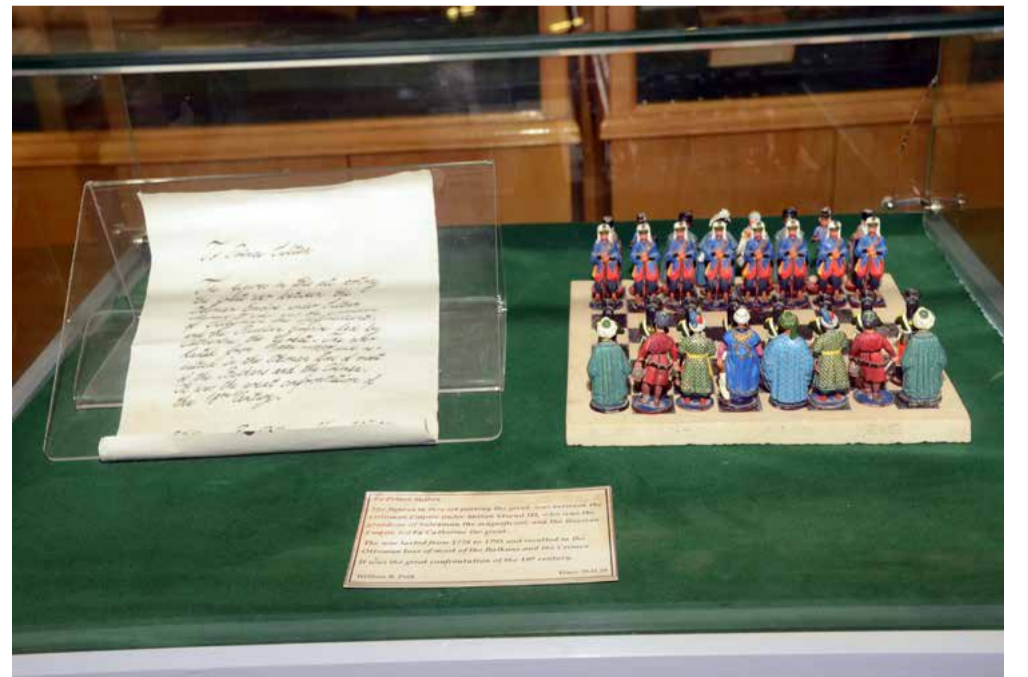 To Prince Sultan
The figures in this set portray
the great war between the
Ottoman Empire under Sultan
of
and the Russian Empire led by
Catherine the Great. The war
lasted from
in the Ottoman loss of most
of the Balkans and the Crimea.
It was the great confrontation of
the 18th Century.
To Prince Sultan
The figures in this set portray the great war between the
Ottoman Empire under Sultan Murad III, who was the
grandson of Suleiman the magnificent, and the Russian
Empire led by Catherine the great.
The war lasted from and resulted in the
Ottoman loss of most of the Balkans and the Crimea.
It was the great confrontation of the 18th century.
William R. Polk
Vence